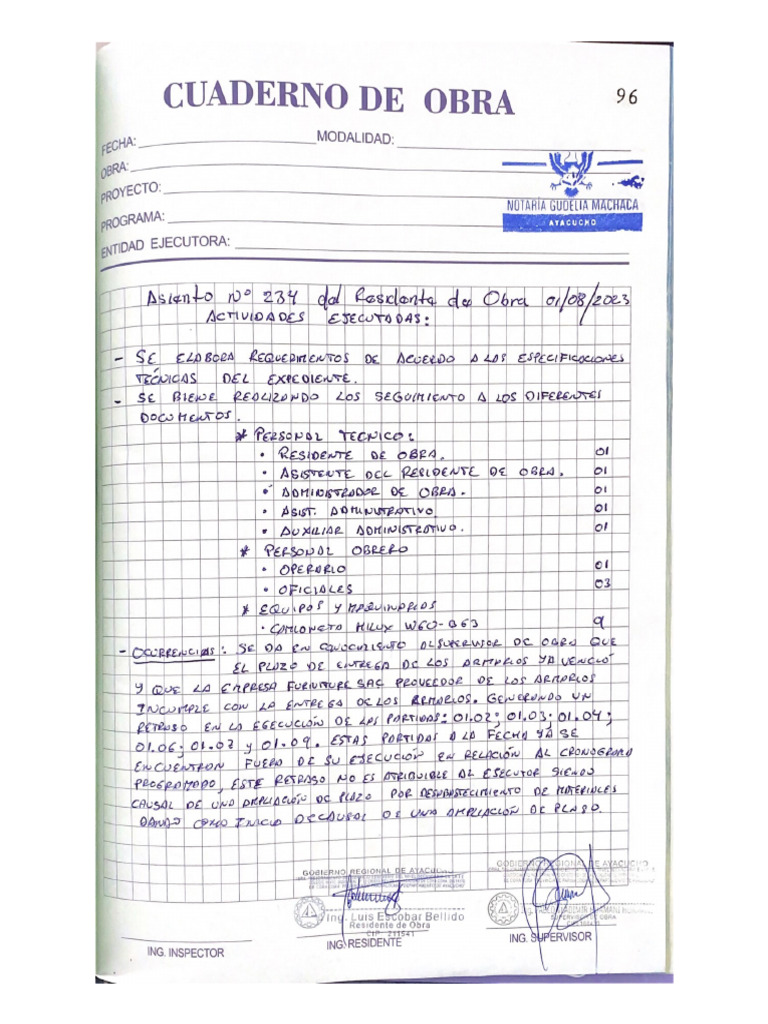 CUADERNO DE OBRA
96
FECHA:
MODALIDAD:
OBRA:
PROYECTO:
PROGRAMA:
ENTIDAD EJECUTORA:
NOTARÍA GUDELIA MACHACA
AYACUCHO
Asiento Nº 234 del Residente de Obra 01/08/2023
ACTIVIDADES EJECUTADAS:
- SE ELABORA REQUERIMIENTOS DE ACUERDO A LAS ESPECIFICACIONES
TÉCNICAS DEL EXPEDIENTE.
- SE BIENE REALIZANDO LOS SEGUIMIENTO A LOS DIFERENTES
DOCUMENTOS.
* PERSONAL TECNICO:
• RESIDENTE DE OBRA. 01
• ASISTENTE DEL RESIDENTE DE OBRA. 01
• ADMINISTRADOR DE OBRA. 01
• ASIST. ADMINISTRATIVO 01
• AUXILIAR ADMINISTRATIVO. 01
* PERSONAL OBRERO
• OPERARIO 01
• OFICIALES 03
* EQUIPOS Y MAQUINARIAS
• CAMIONETA HILUX W60-963 9
- OCURRENCIAS: SE DA EN CONOCIMIENTO AL SUPERVISOR DE OBRA QUE
EL PLAZO DE ENTREGA DE LOS ARMARIOS YA VENCIÓ
Y QUE LA EMPRESA FURNITURE SAC PROVEEDOR DE LOS ARMARIOS
INCUMPLE CON LA ENTREGA DE LOS ARMARIOS. GENERANDO UN
RETRASO EN LA EGECUCIÓN DE LAS PARTIDAS: 01.02; 01.03; 01.04;
01.06; 01.07 Y 01.09. ESTAS PARTIDAS A LA FECHA YA SE
ENCUENTRAN FUERA DE SU EJECUCIÓN EN RELACIÓN AL CRONOGRAMA
PROGRAMADO, ESTE RETRASO NO ES ATRIBUIBLE AL EJECUTOR SIENDO
CAUSAL DE UNA AMPLIACIÓN DE PLAZO POR DESABASTECIMIENTO DE MATERIALES
DANDO COMO INICIO DE CAUSAL DE UNA AMPLIACIÓN DE PLASO.
GOBIERNO REGIONAL DE AYACUCHO
Ing. Luis Escobar Bellido
Residente de Obra
CIP 211541
GOBIERNO REGIONAL DE AYACUCHO
SUPERVISOR DE OBRA
ING. INSPECTOR
ING. RESIDENTE
ING. SUPERVISOR